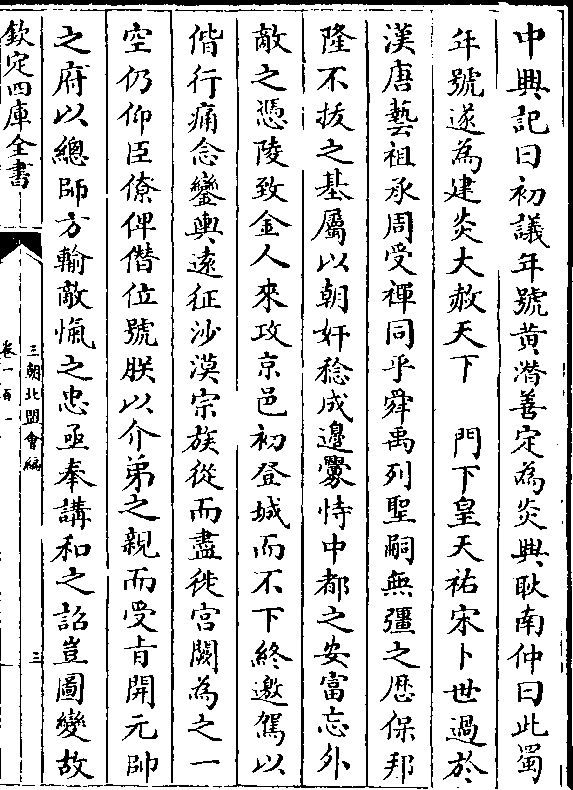 中興記曰初議年號黄潛善定為炎興耿南仲曰此蜀
年號遂為建炎大赦天下　門下皇天祐宋卜世過於
漢唐藝祖承周受禪同乎舜禹列聖嗣無彊之厯保邦
隆不拔之基屬以朝奸稔成邊釁恃中都之安富忘外
敵之憑陵致金人來攻京邑初登城而不下終邀駕以
偕行痛念鑾輿遠征沙漠宗族從而盡徙宫闕為之一
空仍仰臣僚俾僭位號朕以介弟之親而受㫖開元帥
之府以總師方輸敵愾之忠亟奉講和之詔豈圖變故
欽定四庫全書
三朝北盟會編
卷一百一
三